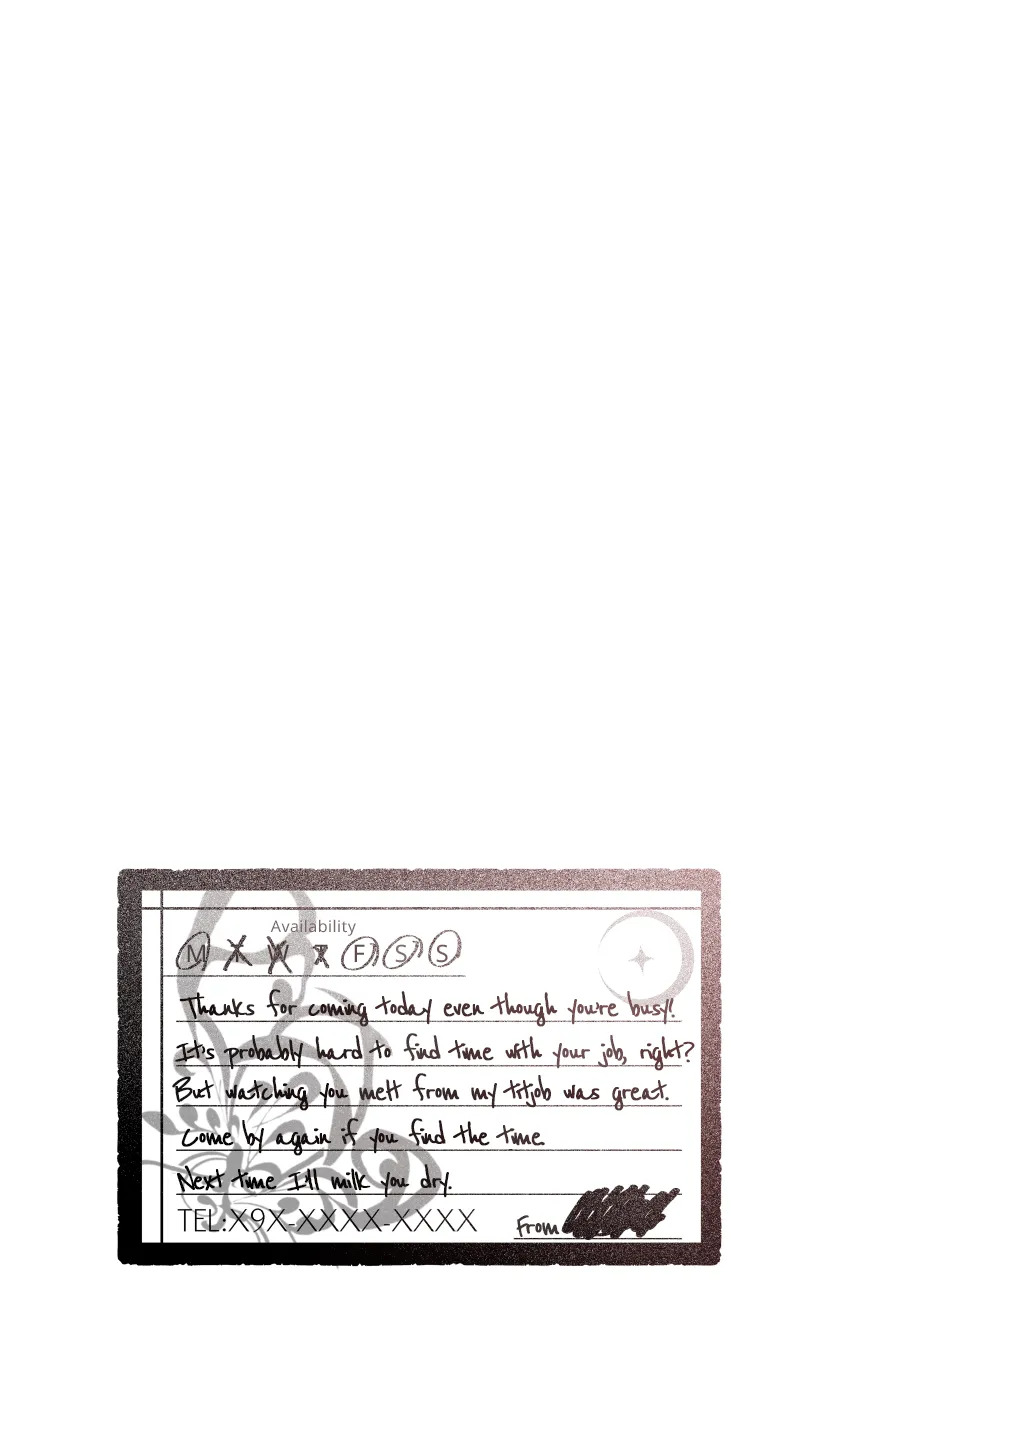 Availability
M T W T F S S
Thanks for coming today even though you're busy!
It's probably hard to find time with your job, right?
But watching you melt from my titjob was great.
Come by again if you find the time.
Next time I'll milk you dry.
TEL:X9X-XXXX-XXXX
From